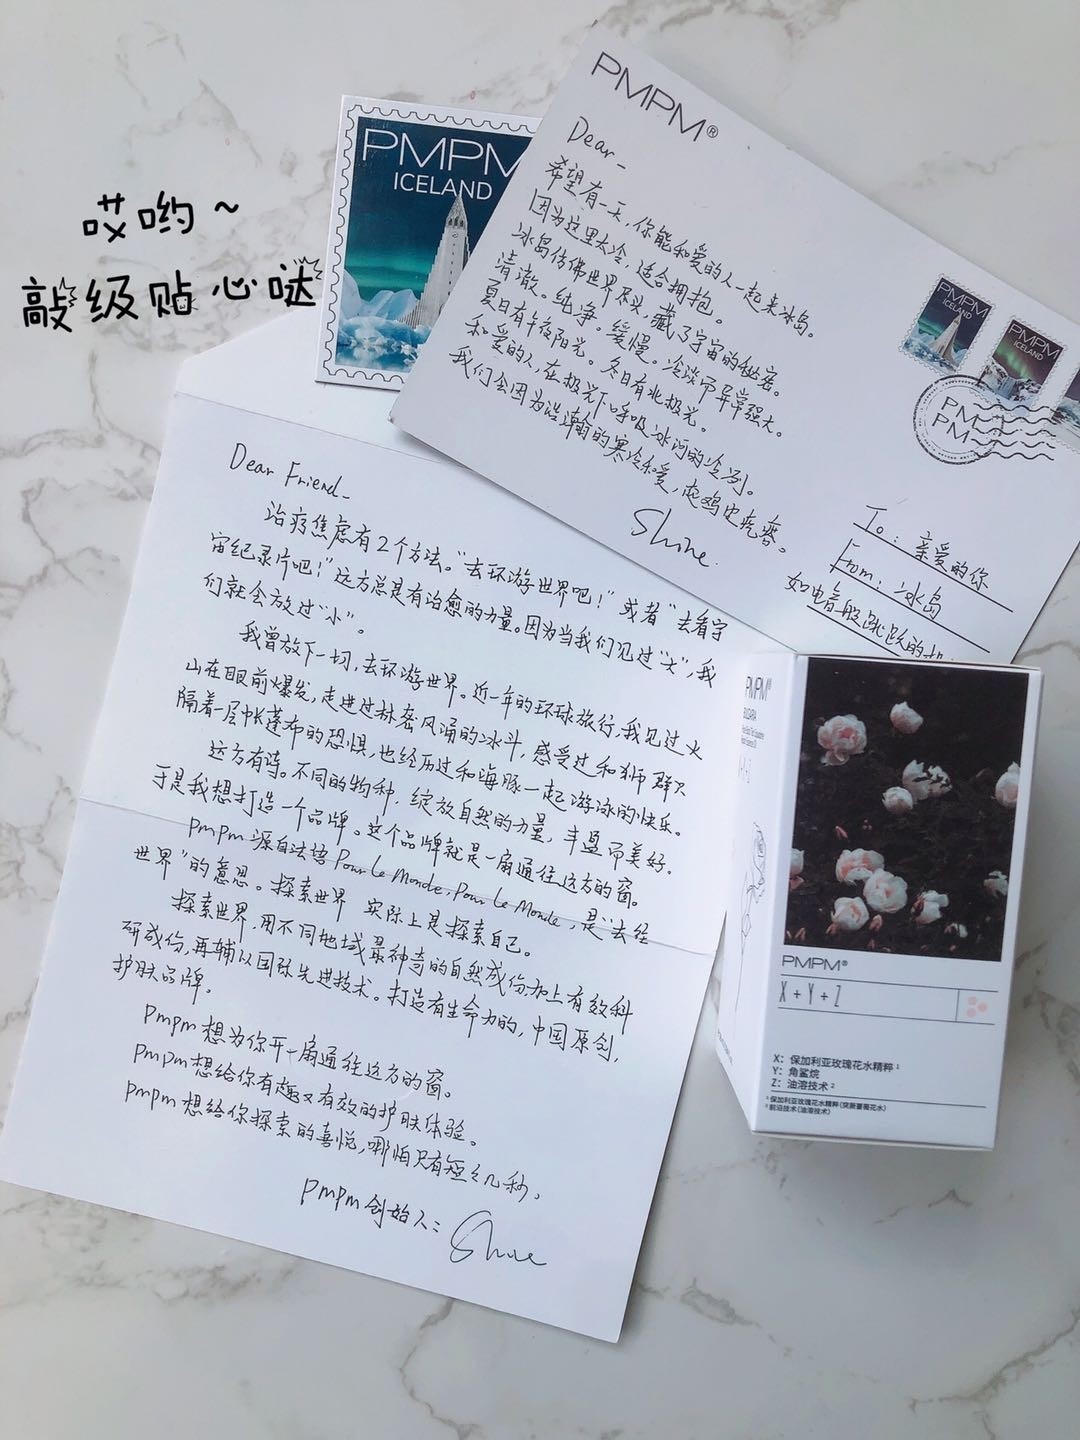 哎哟~
敲级贴心哒
PMPM
ICELAND
PMPM®
Dear_
希望有一天，你能和爱的人一起来冰岛。
因为这里太冷，适合拥抱。
冰岛仿佛世界尽头，藏了宇宙的秘密。
清澈。纯净。缓慢。冷淡而异常强大。
夏日有午夜阳光。冬日有北极光。
和爱的人，在极光下呼吸冰河的冷冽。
我们会因为浩瀚的寒冷和爱，起鸡皮疙瘩。
Shine.
PMPM
ICELAND
PMPM
ICELAND
PM
PM
To：亲爱的你
From：冰岛
Dear Friend_
治疗焦虑有2个方法。“去环游世界吧！”或者“去看宇
宙纪录片吧！”远方总是有治愈的力量。因为当我们见过“大”，我
们就会放过“小”。
我曾放下一切，去环游世界。近一年的环球旅行，我见过火
山在眼前爆发，走进过林密风涌的冰斗，感受过和狮群只
隔着一层帐篷布的恐惧，也经历过和海豚一起游泳的快乐。
远方有诗。不同的物种，绽放自然的力量，丰盈而美好。
于是我想打造一个品牌。这个品牌就是一扇通往远方的窗。
PMPM源自法语Pour Le Monde, Pour Le Monde，是“去往
世界”的意思。探索世界 实际上是探索自己。
探索世界，用不同地域最神奇的自然成份，加上有效科
研成份，再辅以国际先进技术。打造有生命力的，中国原创，
护肤品牌。
PMPM想为你开一扇通往远方的窗。
PMPM想给你有趣又有效的护肤体验。
PMPM想给你探索的喜悦，哪怕只有短短几秒。
PMPM创始人：Shine
PMPM®
BULGARIA
X+Y+Z
PMPM®
X+Y+Z
X：保加利亚玫瑰花水精粹¹
Y：角鲨烷
Z：油溶技术²
¹保加利亚玫瑰花水精粹(突厥蔷薇花水)
²前沿技术(油溶技术)